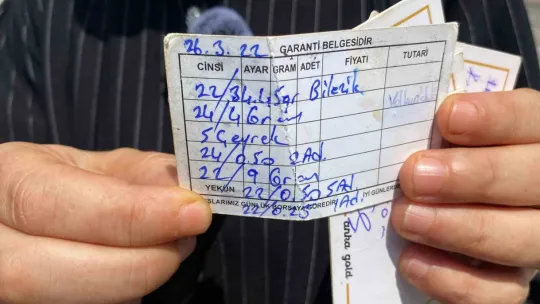 26.3.22 GARANTİ BELGESİDİR
CİNSİ AYAR GRAM ADET FİYATI TUTARI
22/34.45gr Bilezik
24/4 Gram
5 Çeyrek
24/0.50 2Ad.
22/9 Gram
YEKÜN 22/0.50 5Ad.
GÜNLÜK BORSAYA GÖREDİR İYİ GÜNLER
22/0.25 1Ad.
anka gold